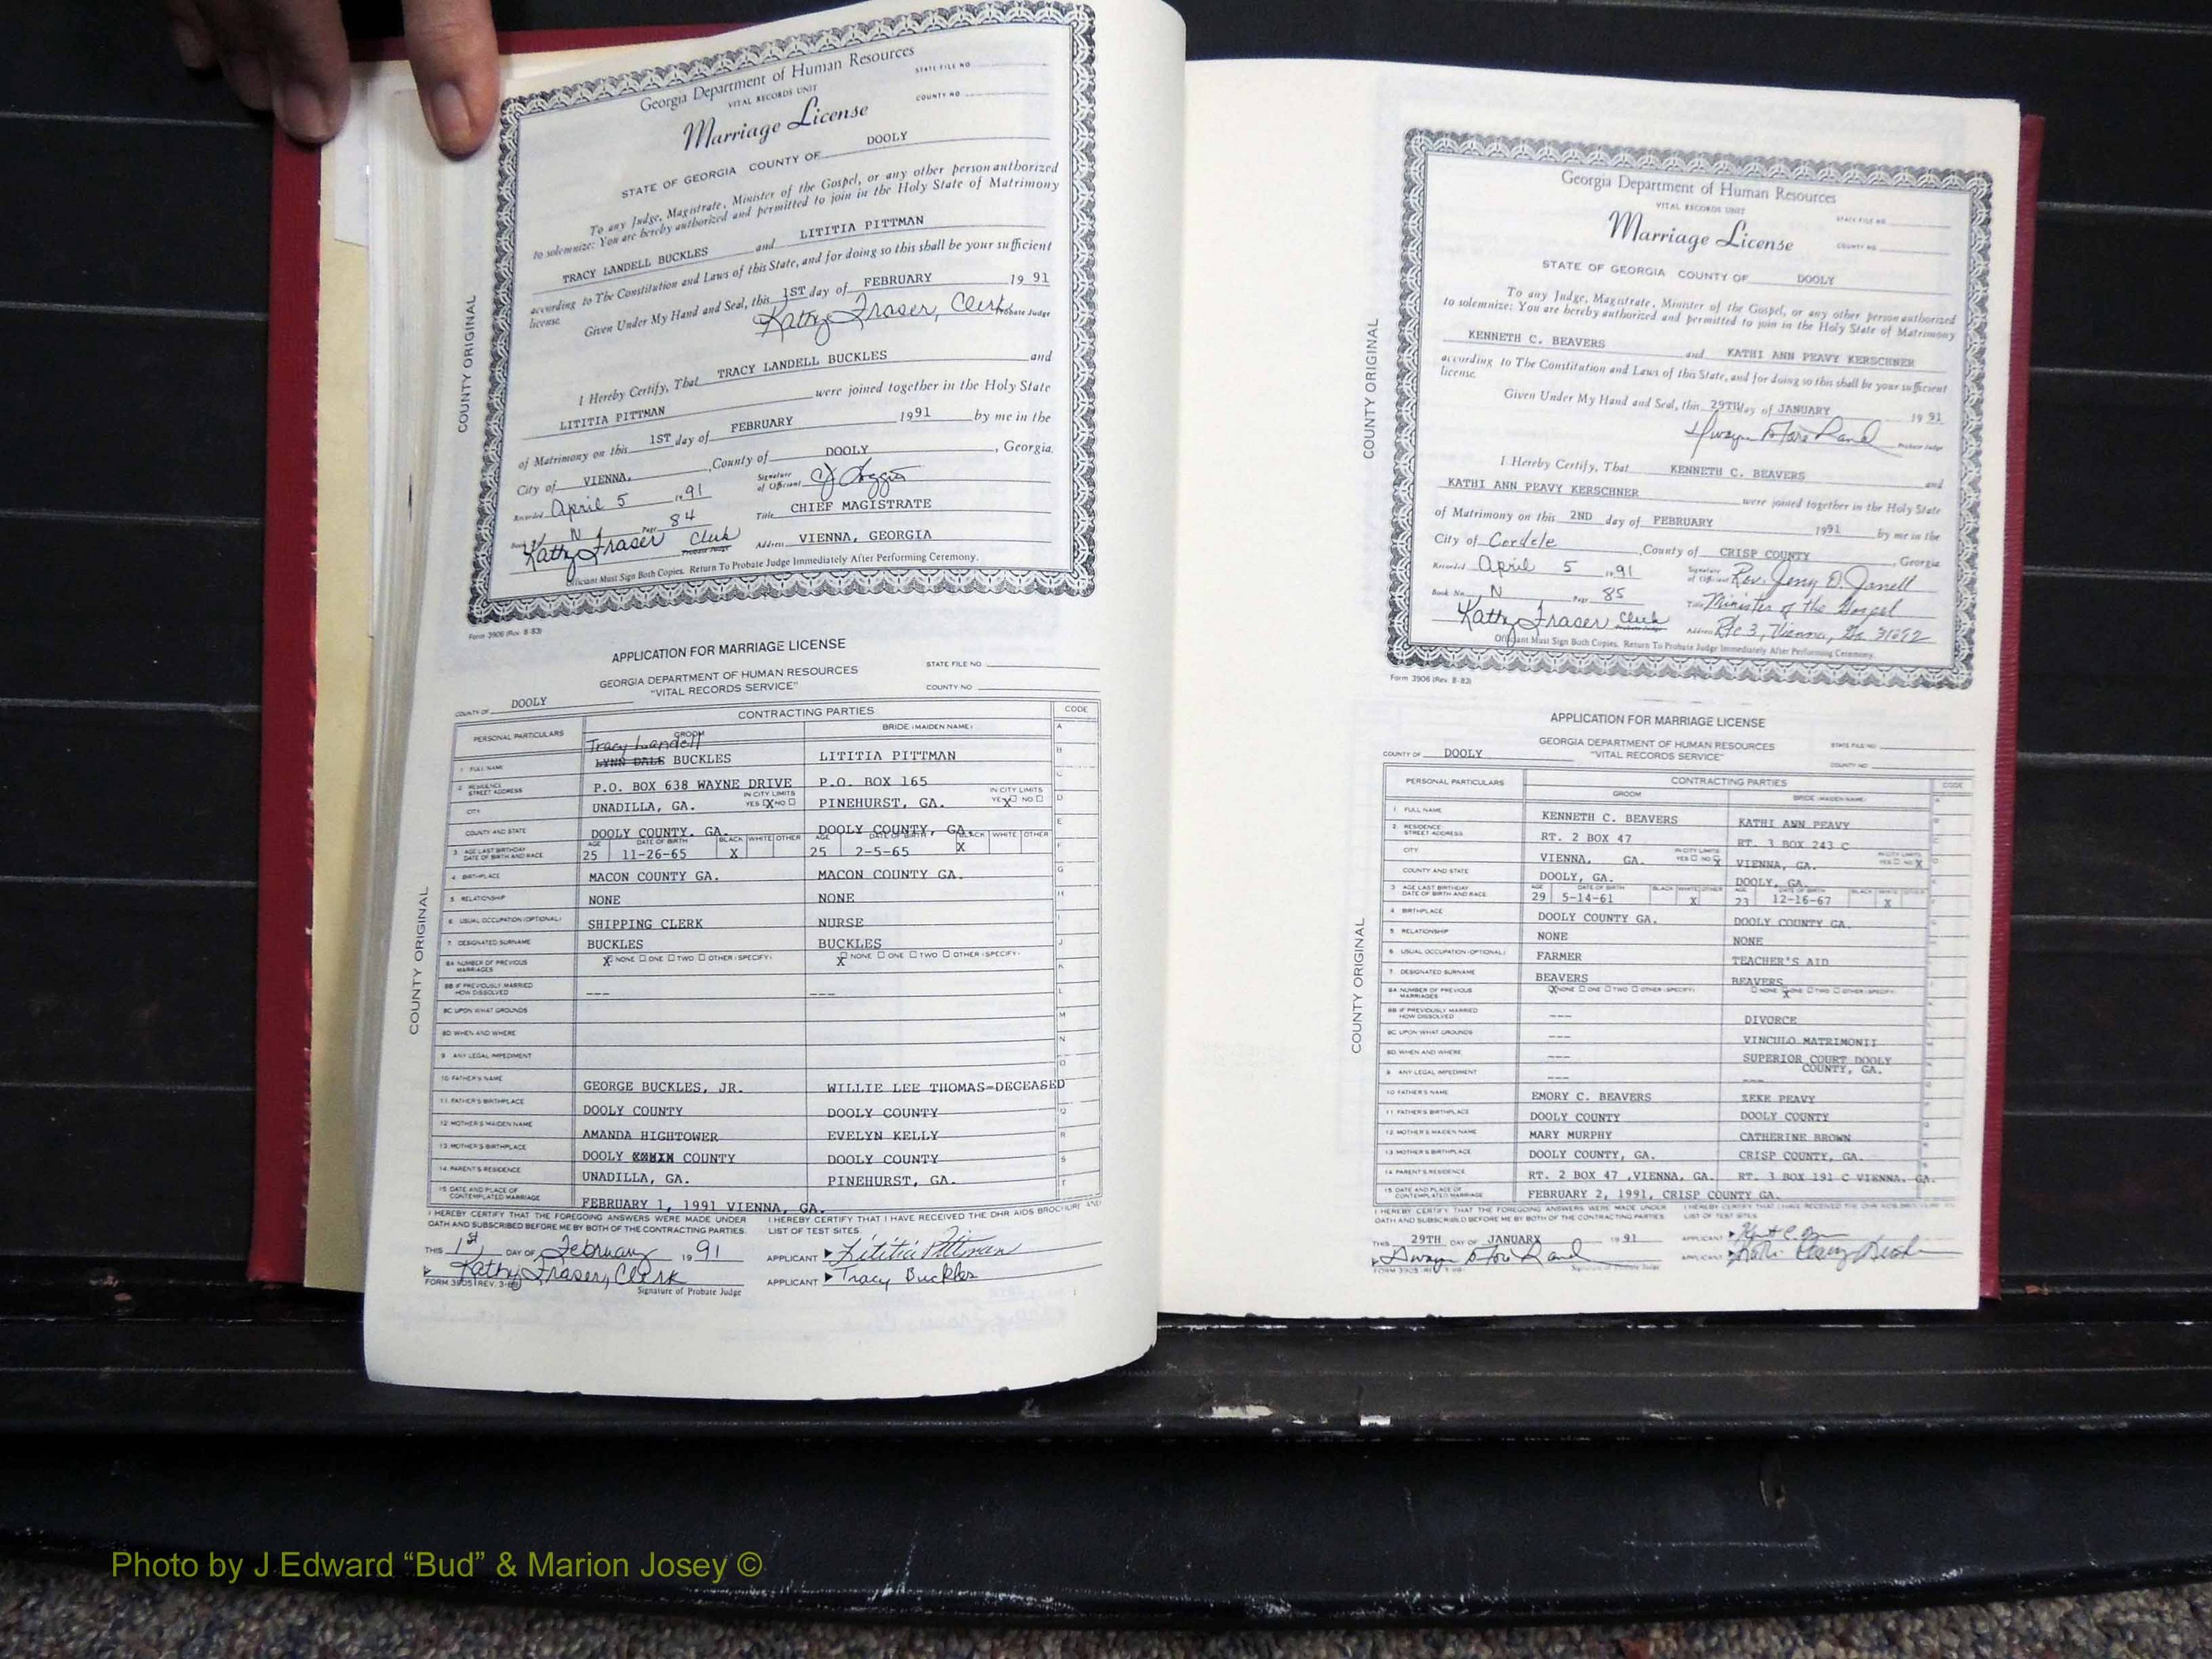 Georgia Department of Human Resources
VITAL RECORDS UNIT
STATE FILE NO
COUNTY NO
Marriage License
STATE OF GEORGIA COUNTY OF DOOLY
To any Judge, Magistrate, Minister of the Gospel, or any other person authorized
to solemnize: You are hereby authorized and permitted to join in the Holy State of Matrimony
TRACY LANDELL BUCKLES and LITITIA PITTMAN
according to The Constitution and Laws of this State, and for doing so this shall be your sufficient
license.
Given Under My Hand and Seal, this 1ST day of FEBRUARY 19 91
Kathy Fraser, Clerk Probate Judge
I Hereby Certify, That TRACY LANDELL BUCKLES and
LITITIA PITTMAN were joined together in the Holy State
of Matrimony on this 1ST day of FEBRUARY 1991 by me in the
City of VIENNA, County of DOOLY, Georgia.
Recorded April 5 1991 Signature of Officiant
Book No. N Page 84 Title CHIEF MAGISTRATE
Kathy Fraser Clerk Probate Judge Address VIENNA, GEORGIA
Officiant Must Sign Both Copies. Return To Probate Judge Immediately After Performing Ceremony.
Form 3906 (Rev. 8-83)
COUNTY ORIGINAL
APPLICATION FOR MARRIAGE LICENSE
GEORGIA DEPARTMENT OF HUMAN RESOURCES
"VITAL RECORDS SERVICE"
STATE FILE NO
COUNTY NO
COUNTY OF DOOLY
PERSONAL PARTICULARS CONTRACTING PARTIES CODE
GROOM BRIDE (MAIDEN NAME)
Tracy Landell
1. FULL NAME LYNN DALE BUCKLES LITITIA PITTMAN
2. RESIDENCE STREET ADDRESS P.O. BOX 638 WAYNE DRIVE P.O. BOX 165
CITY UNADILLA, GA. IN CITY LIMITS YES X NO PINEHURST, GA. IN CITY LIMITS YES X NO
COUNTY AND STATE DOOLY COUNTY. GA. DOOLY COUNTY, GA.
3. AGE LAST BIRTHDAY DATE OF BIRTH AND RACE AGE 25 DATE OF BIRTH 11-26-65 BLACK X WHITE OTHER AGE 25 DATE OF BIRTH 2-5-65 BLACK X WHITE OTHER
4. BIRTHPLACE MACON COUNTY GA. MACON COUNTY GA.
5. RELATIONSHIP NONE NONE
6. USUAL OCCUPATION (OPTIONAL) SHIPPING CLERK NURSE
7. DESIGNATED SURNAME BUCKLES BUCKLES
8A NUMBER OF PREVIOUS MARRIAGES X NONE ONE TWO OTHER (SPECIFY) X NONE ONE TWO OTHER (SPECIFY)
8B IF PREVIOUSLY MARRIED HOW DISSOLVED --- ---
8C UPON WHAT GROUNDS
8D WHEN AND WHERE
9. ANY LEGAL IMPEDIMENT
10 FATHER'S NAME GEORGE BUCKLES, JR. WILLIE LEE THOMAS-DECEASED
11. FATHER'S BIRTHPLACE DOOLY COUNTY DOOLY COUNTY
12 MOTHER'S MAIDEN NAME AMANDA HIGHTOWER EVELYN KELLY
13. MOTHER'S BIRTHPLACE DOOLY COUNTY DOOLY COUNTY
14. PARENT'S RESIDENCE UNADILLA, GA. PINEHURST, GA.
15 DATE AND PLACE OF CONTEMPLATED MARRIAGE FEBRUARY 1, 1991 VIENNA, GA.
I HEREBY CERTIFY THAT THE FOREGOING ANSWERS WERE MADE UNDER
OATH AND SUBSCRIBED BEFORE ME BY BOTH OF THE CONTRACTING PARTIES.
I HEREBY CERTIFY THAT I HAVE RECEIVED THE DHR AIDS BROCHURE AND
LIST OF TEST SITES.
THIS 1st DAY OF February 1991 APPLICANT Lititia Pittman
Kathy Fraser, Clerk APPLICANT Tracy Buckles
FORM 3905 (REV. 3-88) Signature of Probate Judge
COUNTY ORIGINAL
Georgia Department of Human Resources
VITAL RECORDS UNIT
STATE FILE NO
Marriage License
COUNTY NO
STATE OF GEORGIA COUNTY OF DOOLY
To any Judge, Magistrate, Minister of the Gospel, or any other person authorized
to solemnize: You are hereby authorized and permitted to join in the Holy State of Matrimony
KENNETH C. BEAVERS and KATHI ANN PEAVY KERSCHNER
according to The Constitution and Laws of this State, and for doing so this shall be your sufficient
license.
Given Under My Hand and Seal, this 29TH day of JANUARY 19 91
Probate Judge
I Hereby Certify, That KENNETH C. BEAVERS and
KATHI ANN PEAVY KERSCHNER were joined together in the Holy State
of Matrimony on this 2ND day of FEBRUARY 1991 by me in the
City of Cordele, County of CRISP COUNTY, Georgia
Recorded April 5 1991 Signature of Officiant Rev. Jerry D.
Book No. N Page 85 Title Minister of the Gospel
Kathy Fraser Clerk Address Rte 3, Vienna, Ga 31092
Officiant Must Sign Both Copies. Return To Probate Judge Immediately After Performing Ceremony.
Form 3906 (Rev. 8-83)
COUNTY ORIGINAL
APPLICATION FOR MARRIAGE LICENSE
GEORGIA DEPARTMENT OF HUMAN RESOURCES
"VITAL RECORDS SERVICE"
STATE FILE NO
COUNTY NO
COUNTY OF DOOLY
PERSONAL PARTICULARS CONTRACTING PARTIES CODE
GROOM BRIDE (MAIDEN NAME)
1. FULL NAME KENNETH C. BEAVERS KATHI ANN PEAVY
2. RESIDENCE STREET ADDRESS RT. 2 BOX 47 RT. 3 BOX 243 C
CITY VIENNA, GA. IN CITY LIMITS YES NO X VIENNA, GA. IN CITY LIMITS YES NO X
COUNTY AND STATE DOOLY, GA. DOOLY, GA.
3 AGE LAST BIRTHDAY DATE OF BIRTH AND RACE AGE 29 DATE OF BIRTH 5-14-61 BLACK WHITE X OTHER AGE 23 DATE OF BIRTH 12-16-67 BLACK WHITE X
4 BIRTHPLACE DOOLY COUNTY GA. DOOLY COUNTY GA.
5 RELATIONSHIP NONE NONE
6 USUAL OCCUPATION (OPTIONAL) FARMER TEACHER'S AID
7. DESIGNATED SURNAME BEAVERS BEAVERS
8A NUMBER OF PREVIOUS MARRIAGES X NONE ONE TWO OTHER (SPECIFY) NONE X ONE TWO OTHER (SPECIFY)
8B IF PREVIOUSLY MARRIED HOW DISSOLVED --- DIVORCE
8C UPON WHAT GROUNDS --- VINCULO MATRIMONII
8D WHEN AND WHERE --- SUPERIOR COURT DOOLY COUNTY, GA.
9. ANY LEGAL IMPEDIMENT --- ---
10 FATHER'S NAME EMORY C. BEAVERS ZEKE PEAVY
11 FATHER'S BIRTHPLACE DOOLY COUNTY DOOLY COUNTY
12 MOTHER'S MAIDEN NAME MARY MURPHY CATHERINE BROWN
13 MOTHER'S BIRTHPLACE DOOLY COUNTY, GA. CRISP COUNTY, GA.
14 PARENT'S RESIDENCE RT. 2 BOX 47 ,VIENNA, GA. RT. 3 BOX 191 C VIENNA, GA.
15 DATE AND PLACE OF CONTEMPLATED MARRIAGE FEBRUARY 2, 1991, CRISP COUNTY GA.
I HEREBY CERTIFY THAT THE FOREGOING ANSWERS WERE MADE UNDER
OATH AND SUBSCRIBED BEFORE ME BY BOTH OF THE CONTRACTING PARTIES.
I HEREBY CERTIFY THAT I HAVE RECEIVED THE DHR AIDS BROCHURE AND
LIST OF TEST SITES.
THIS 29TH DAY OF JANUARY 1991 APPLICANT
APPLICANT
Signature of Probate Judge
COUNTY ORIGINAL
Photo by J Edward “Bud” & Marion Josey ©